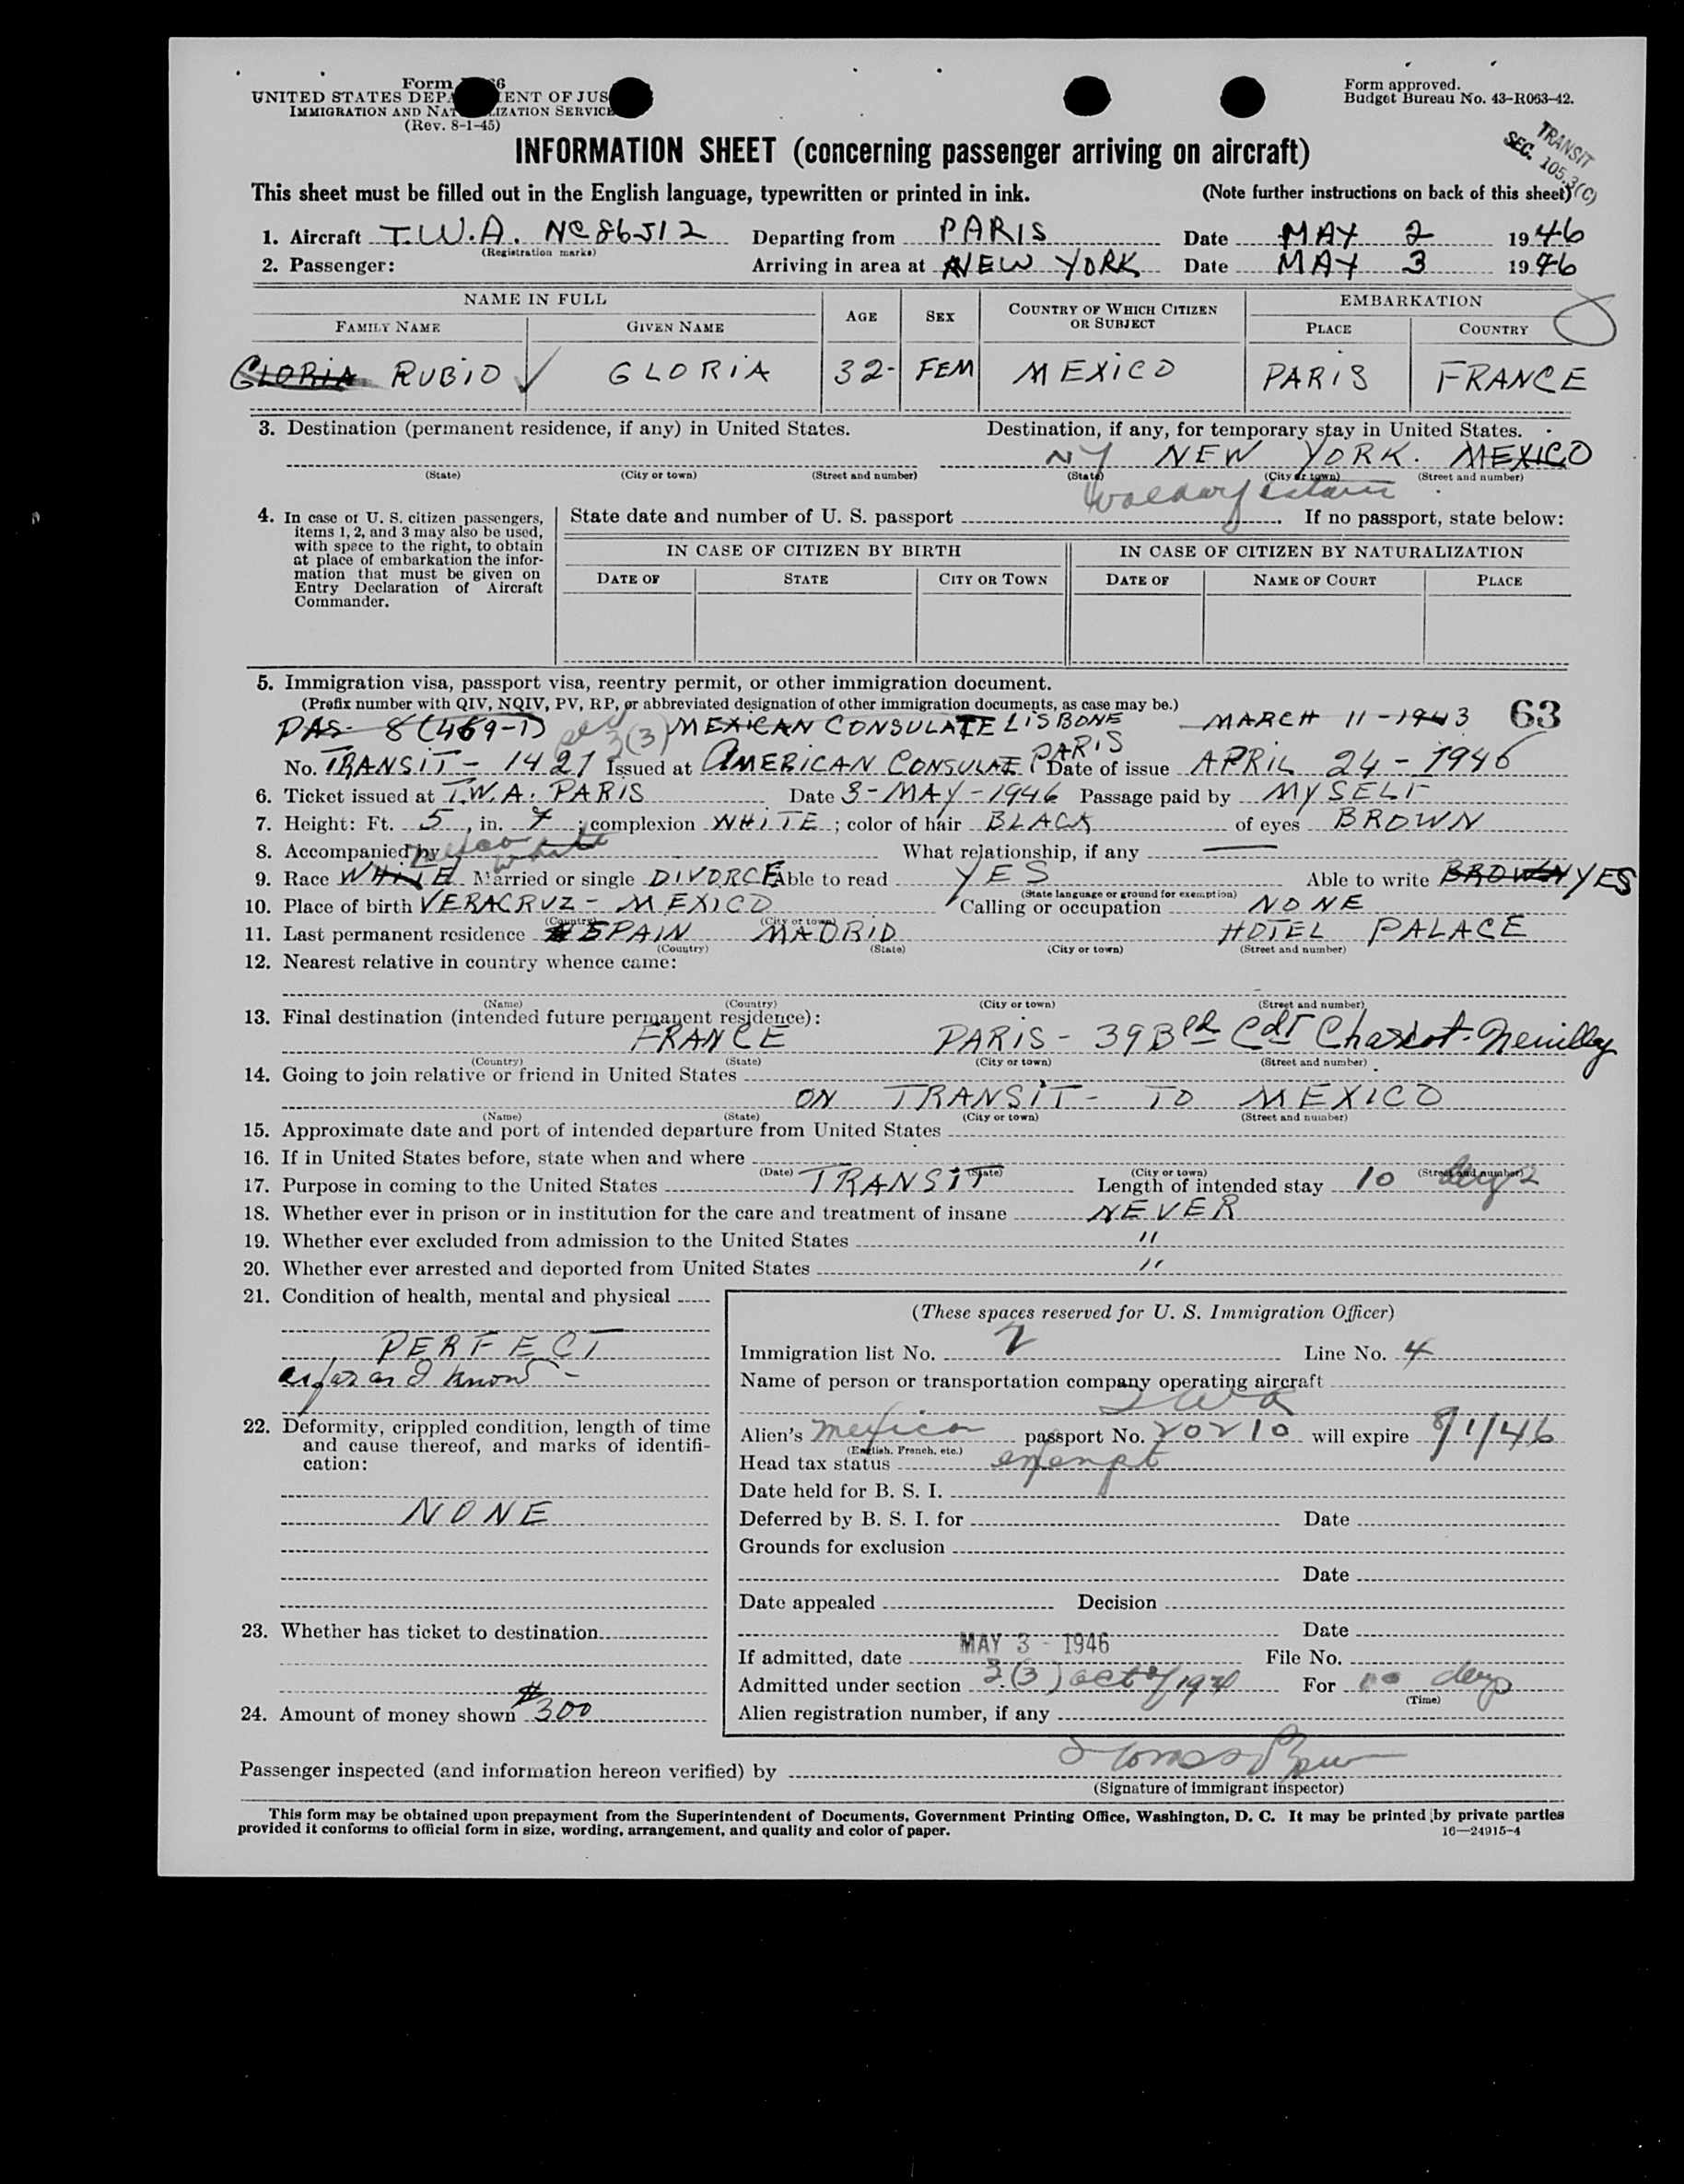 Form 66
UNITED STATES DEPA ENT OF JUS
IMMIGRATION AND NAT LIZATION SERVICE
(Rev. 8-1-45)
Form approved.
Budget Bureau No. 43-R063-42.
TRANSIT
SEC. 105.3(C)
INFORMATION SHEET (concerning passenger arriving on aircraft)
This sheet must be filled out in the English language, typewritten or printed in ink. (Note further instructions on back of this sheet)
1. Aircraft T.W.A. NC 86512 Departing from PARIS Date MAY 2 1946
(Registration marks)
2. Passenger: Arriving in area at NEW YORK Date MAY 3 1946
NAME IN FULL AGE SEX COUNTRY OF WHICH CITIZEN OR SUBJECT EMBARKATION
FAMILY NAME GIVEN NAME PLACE COUNTRY
GLORIA RUBIO GLORIA 32- FEM MEXICO PARIS FRANCE
3. Destination (permanent residence, if any) in United States. Destination, if any, for temporary stay in United States.
NY NEW YORK. MEXICO
(State) (City or town) (Street and number) (State) (City or town) (Street and number)
4. In case of U. S. citizen passengers, items 1, 2, and 3 may also be used, with space to the right, to obtain at place of embarkation the information that must be given on Entry Declaration of Aircraft Commander.
State date and number of U. S. passport If no passport, state below:
IN CASE OF CITIZEN BY BIRTH IN CASE OF CITIZEN BY NATURALIZATION
DATE OF STATE CITY OR TOWN DATE OF NAME OF COURT PLACE
5. Immigration visa, passport visa, reentry permit, or other immigration document.
(Prefix number with QIV, NQIV, PV, RP, or abbreviated designation of other immigration documents, as case may be.)
PAS- 8(469-1) 3(3) MEXICAN CONSULATE LISBONE MARCH 11-1943 63
No. TRANSIT - 1421 Issued at AMERICAN CONSULAT PARIS Date of issue APRIL 24-1946
6. Ticket issued at T.W.A. PARIS Date 3-MAY-1946 Passage paid by MYSELF
7. Height: Ft. 5, in. 7; complexion WHITE; color of hair BLACK of eyes BROWN
8. Accompanied by What relationship, if any —
white
9. Race WHITE Married or single DIVORCE Able to read YES Able to write BROWN YES
(State language or ground for exemption)
10. Place of birth VERACRUZ - MEXICO Calling or occupation NONE
(Country) (City or town)
11. Last permanent residence SPAIN MADRID HOTEL PALACE
(Country) (State) (City or town) (Street and number)
12. Nearest relative in country whence came:
(Name) (Country) (City or town) (Street and number)
13. Final destination (intended future permanent residence):
FRANCE PARIS - 39 Bld Cdt Charcot. Neuilly
(Country) (State) (City or town) (Street and number)
14. Going to join relative or friend in United States
ON TRANSIT - TO MEXICO
(Name) (State) (City or town) (Street and number)
15. Approximate date and port of intended departure from United States
16. If in United States before, state when and where
(Date) (State) (City or town) (Street and number)
17. Purpose in coming to the United States TRANSIT Length of intended stay 10 days
18. Whether ever in prison or in institution for the care and treatment of insane NEVER
19. Whether ever excluded from admission to the United States "
20. Whether ever arrested and deported from United States "
21. Condition of health, mental and physical
PERFECT
as far as I know -
22. Deformity, crippled condition, length of time and cause thereof, and marks of identification:
NONE
23. Whether has ticket to destination
24. Amount of money shown $300
(These spaces reserved for U. S. Immigration Officer)
Immigration list No. 2 Line No. 4
Name of person or transportation company operating aircraft
TWA
Alien's Mexican passport No. 20210 will expire 8/1/46
(English, French, etc.)
Head tax status exempt
Date held for B. S. I.
Deferred by B. S. I. for Date
Grounds for exclusion
Date
Date appealed Decision
Date
If admitted, date MAY 3 - 1946 File No.
Admitted under section 3(3) act of 1924 For 10 days
(Time)
Alien registration number, if any
Passenger inspected (and information hereon verified) by
(Signature of immigrant inspector)
This form may be obtained upon prepayment from the Superintendent of Documents, Government Printing Office, Washington, D. C. It may be printed by private parties
provided it conforms to official form in size, wording, arrangement, and quality and color of paper. 16—24915-4